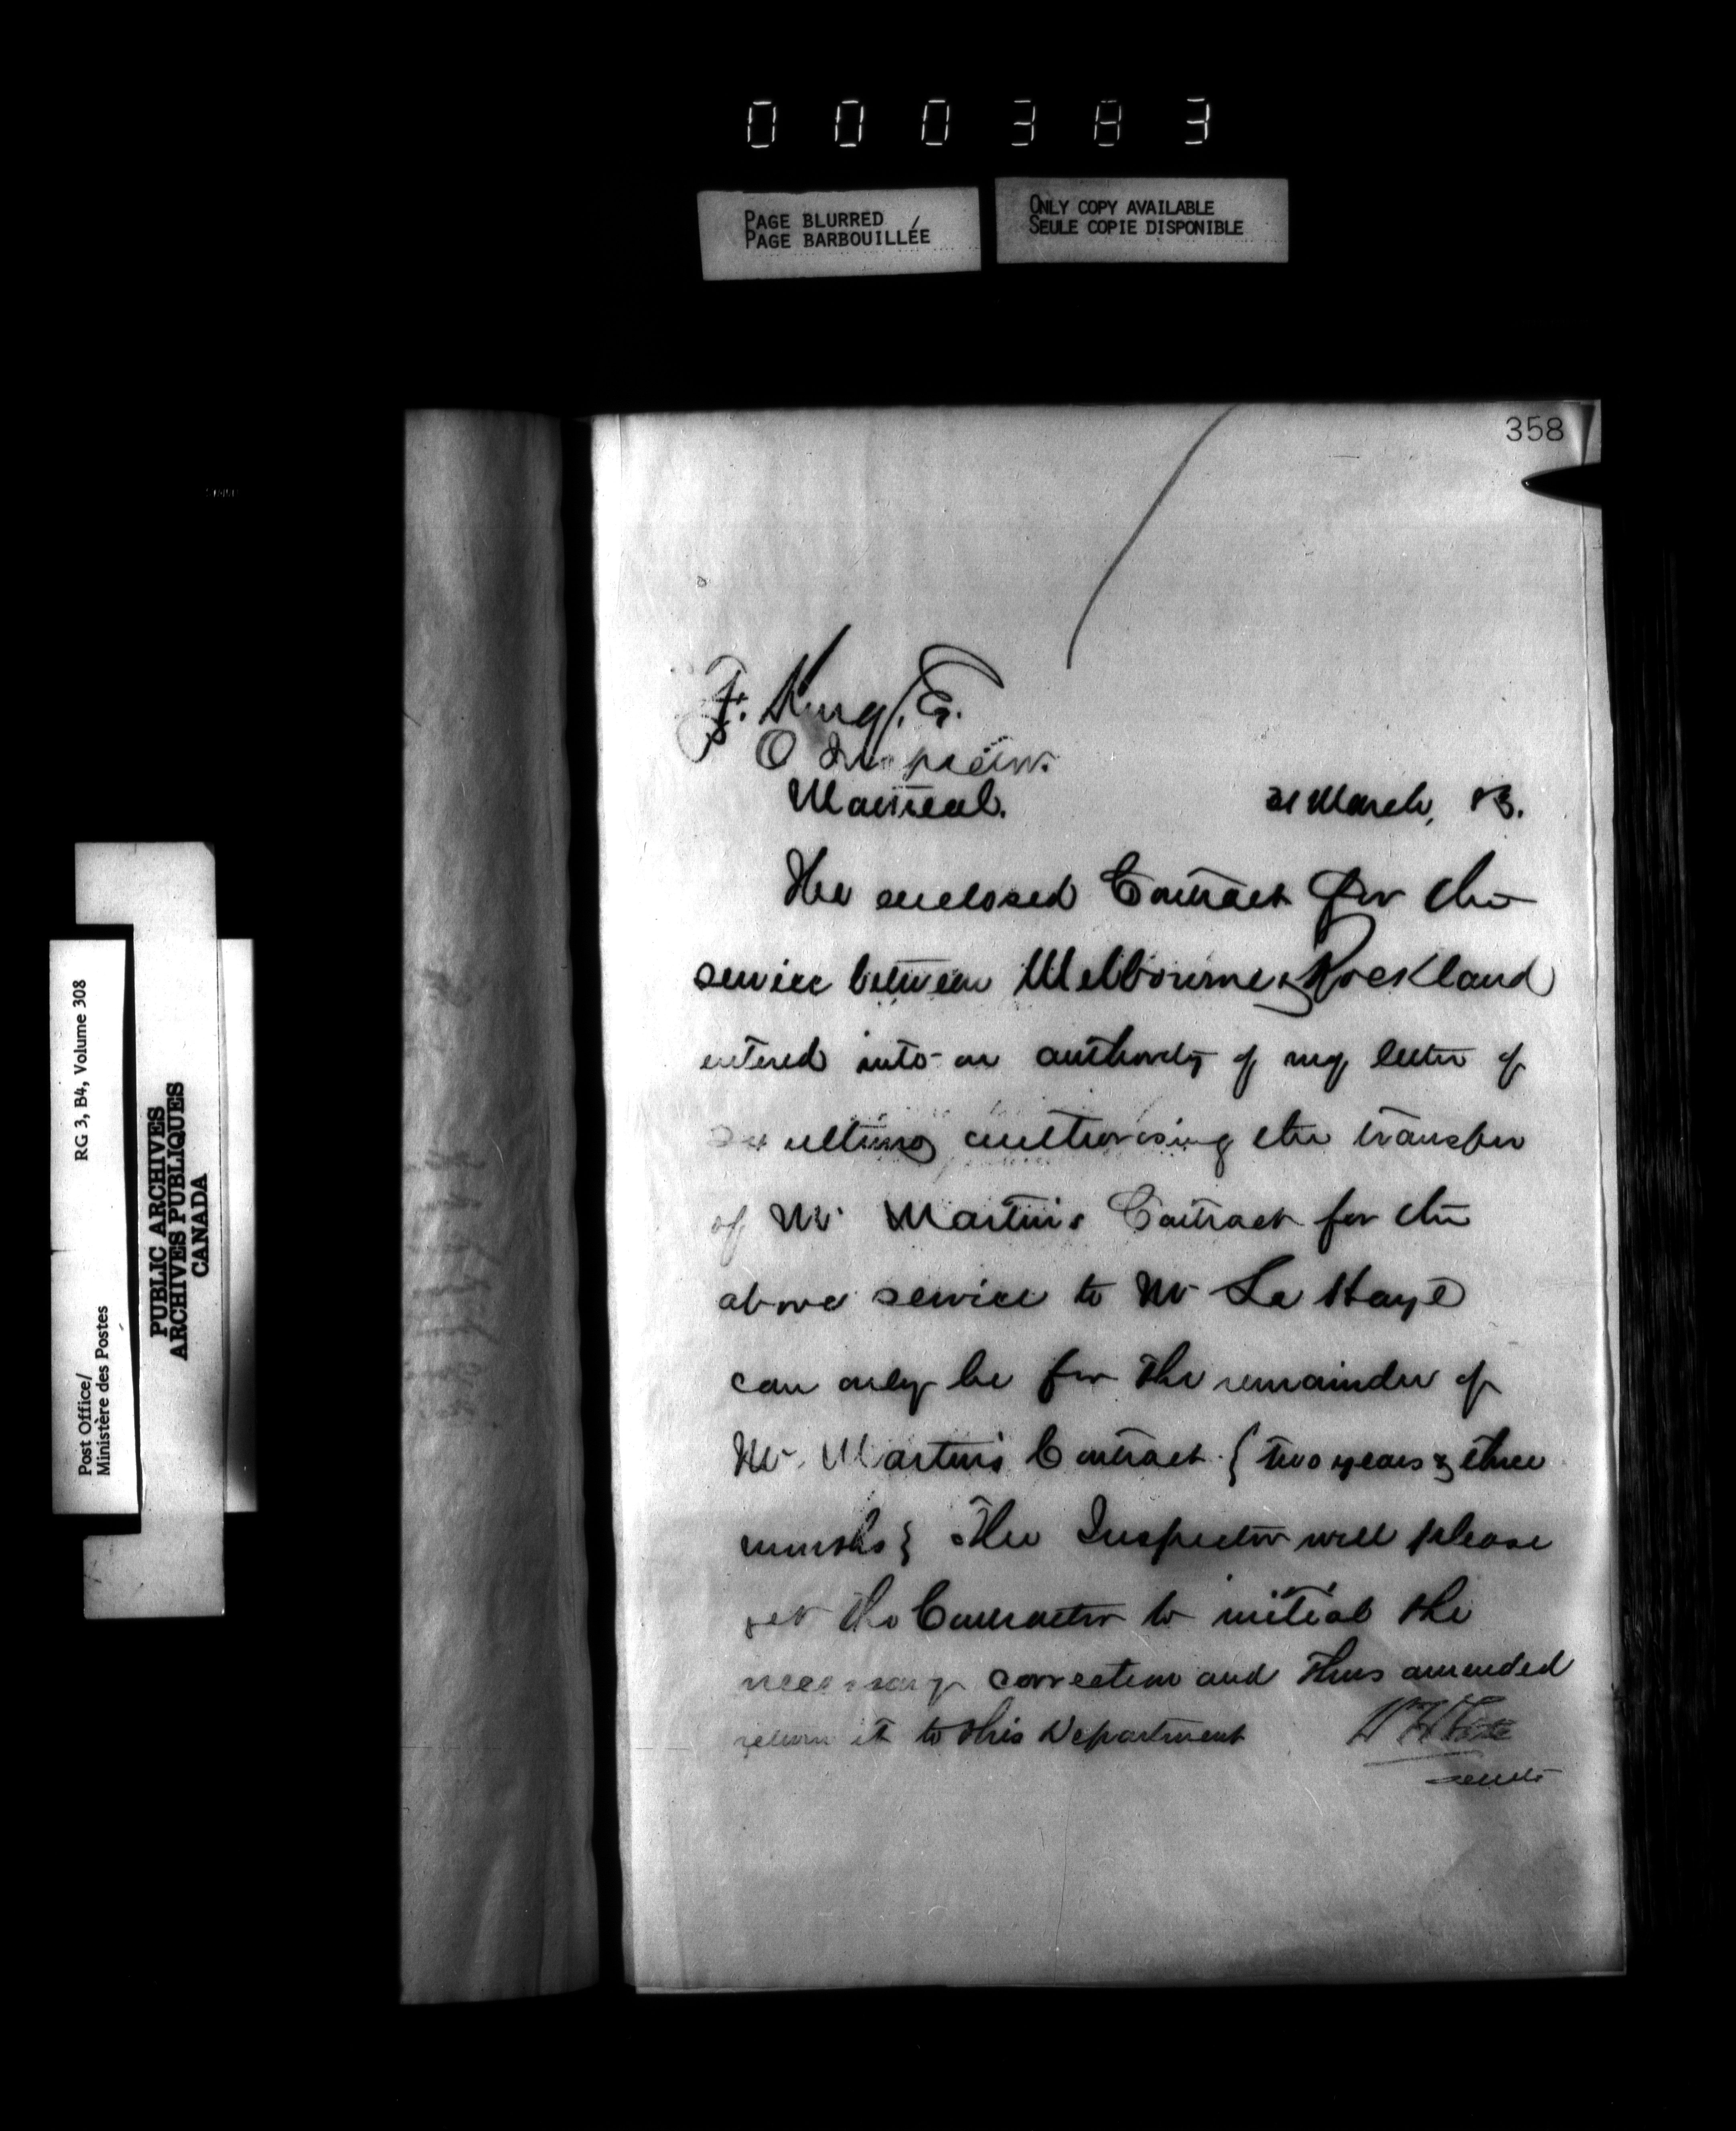 000383
PAGE BLURRED
PAGE BARBOUILLÉE
ONLY COPY AVAILABLE
SEULE COPIE DISPONIBLE
358
F. King, E.
P O Inspector.
Montreal. 21 March, 83.
The enclosed Contract for the
service between Melbourne & Rockland
entered into on authority of my letter of
ultimo authorising the transfer
of Mr Martin's Contract for the
above service to Mr La Haye
can only be for the remainder of
Mr. Martin's Contract { two years & three
months } The Inspector will please
get the Contractor to initial the
necessary correction and thus amended
return it to this Department
RG 3, B4, Volume 308
Post Office/
Ministère des Postes
PUBLIC ARCHIVES
ARCHIVES PUBLIQUES
CANADA